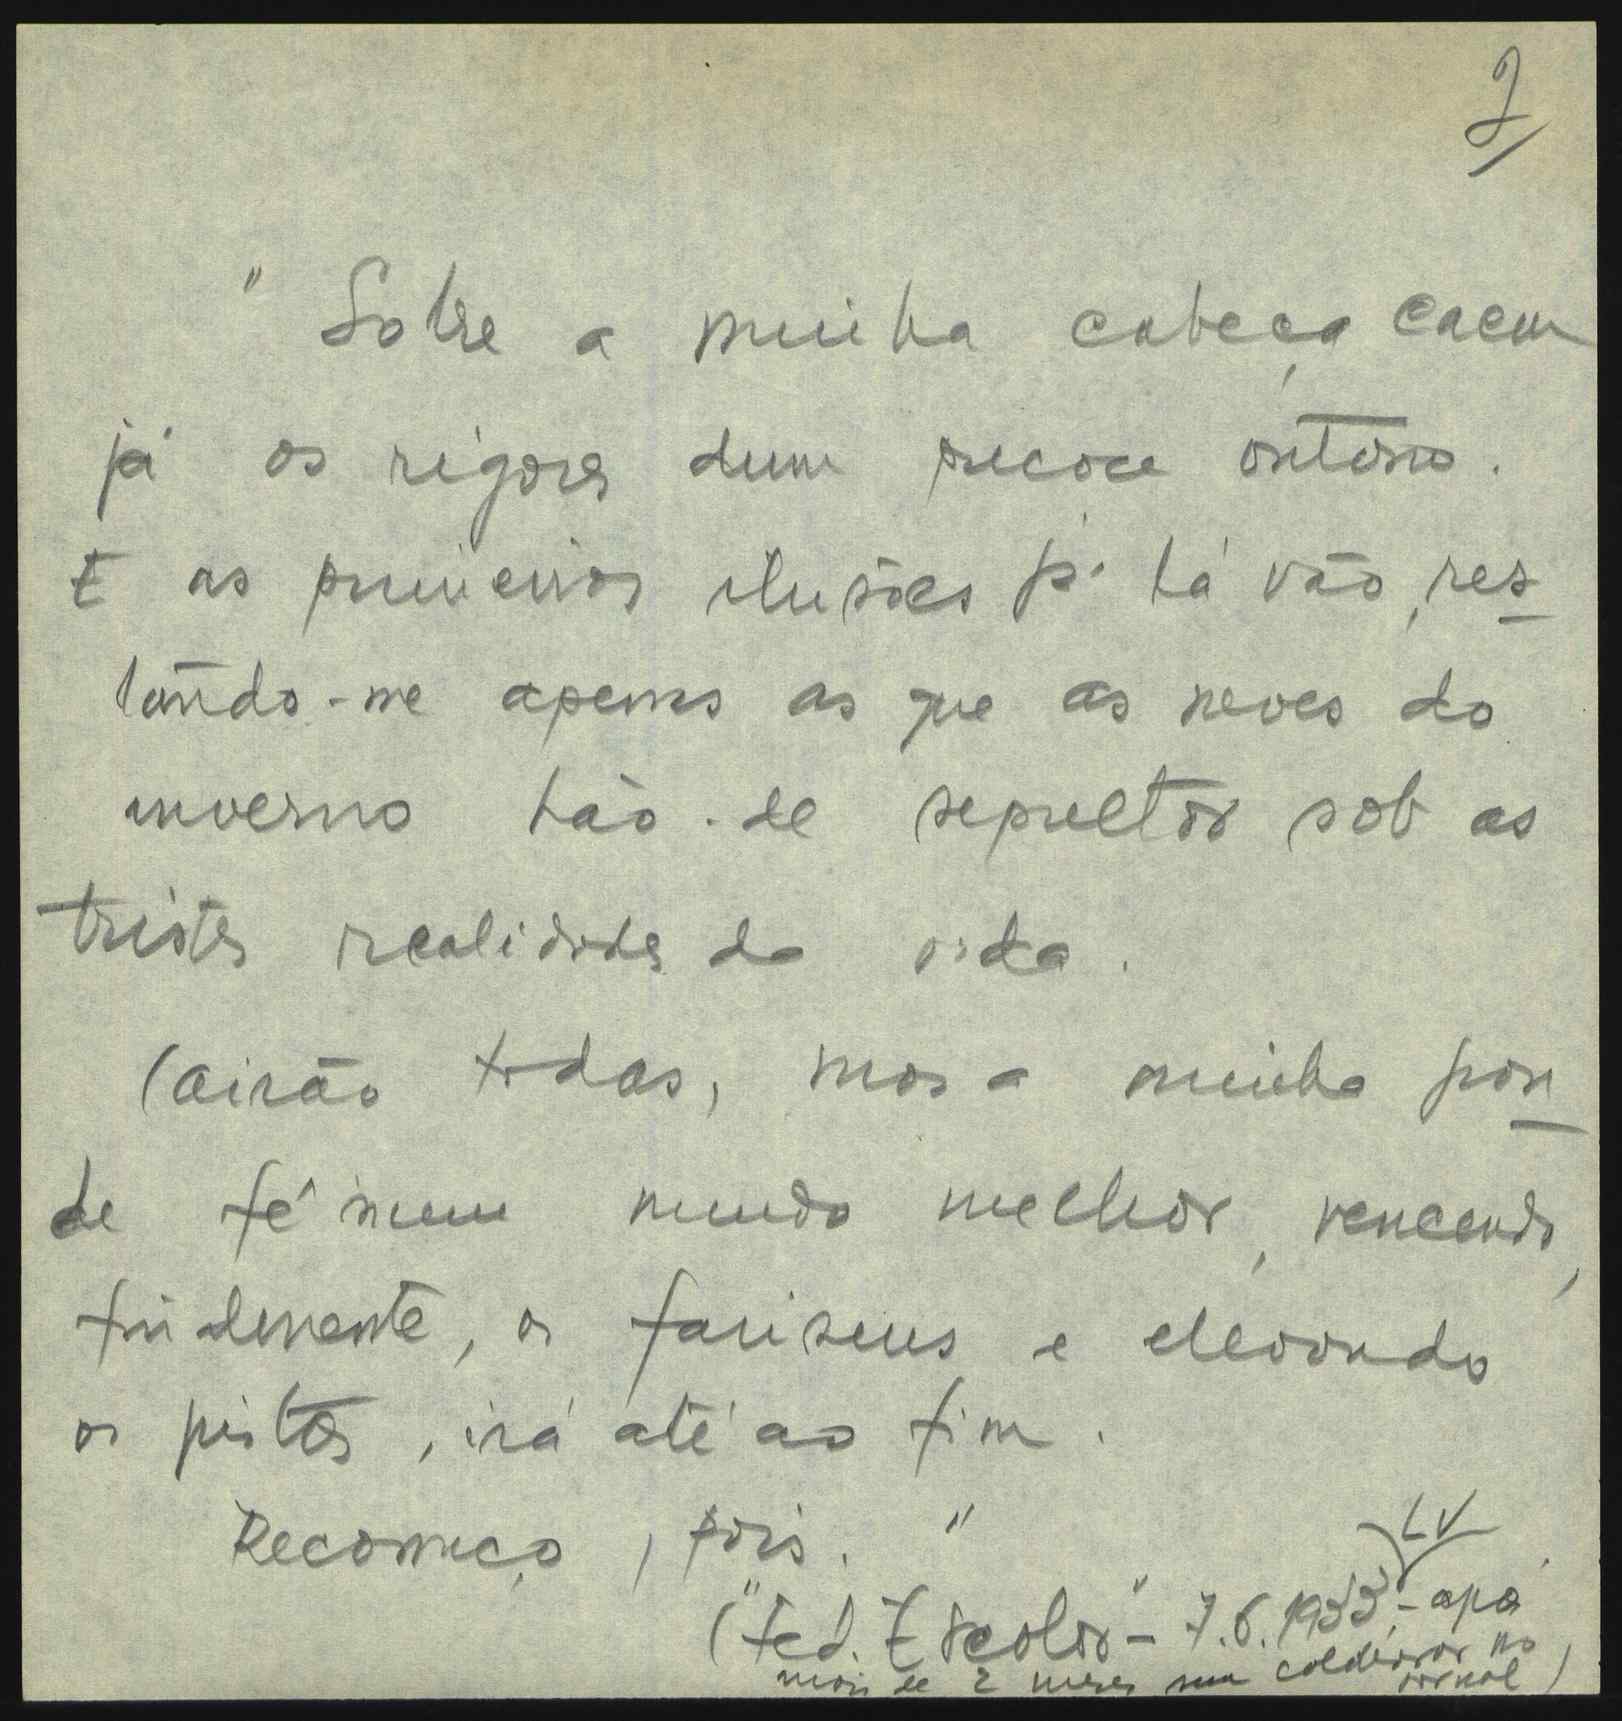 2
" Sobre a minha cabeça caem
já os rigores dum precoce outono.
E as primeiras ilusões já lá vão, res-
tando-me apenas as que as neves do
inverno hão-de sepultar sob as
tristes realidades da vida.
Cairão todas, mas a minha gran-
de fé num mundo melhor, vencendo,
finalmente, os fariseus e elevando
os justos, irá até ao fim.
Recomeço, pois. "
LV
("Fed. Escolar" - 7.6.1933, - após
mais de 2 meses sem colaborar no
jornal)